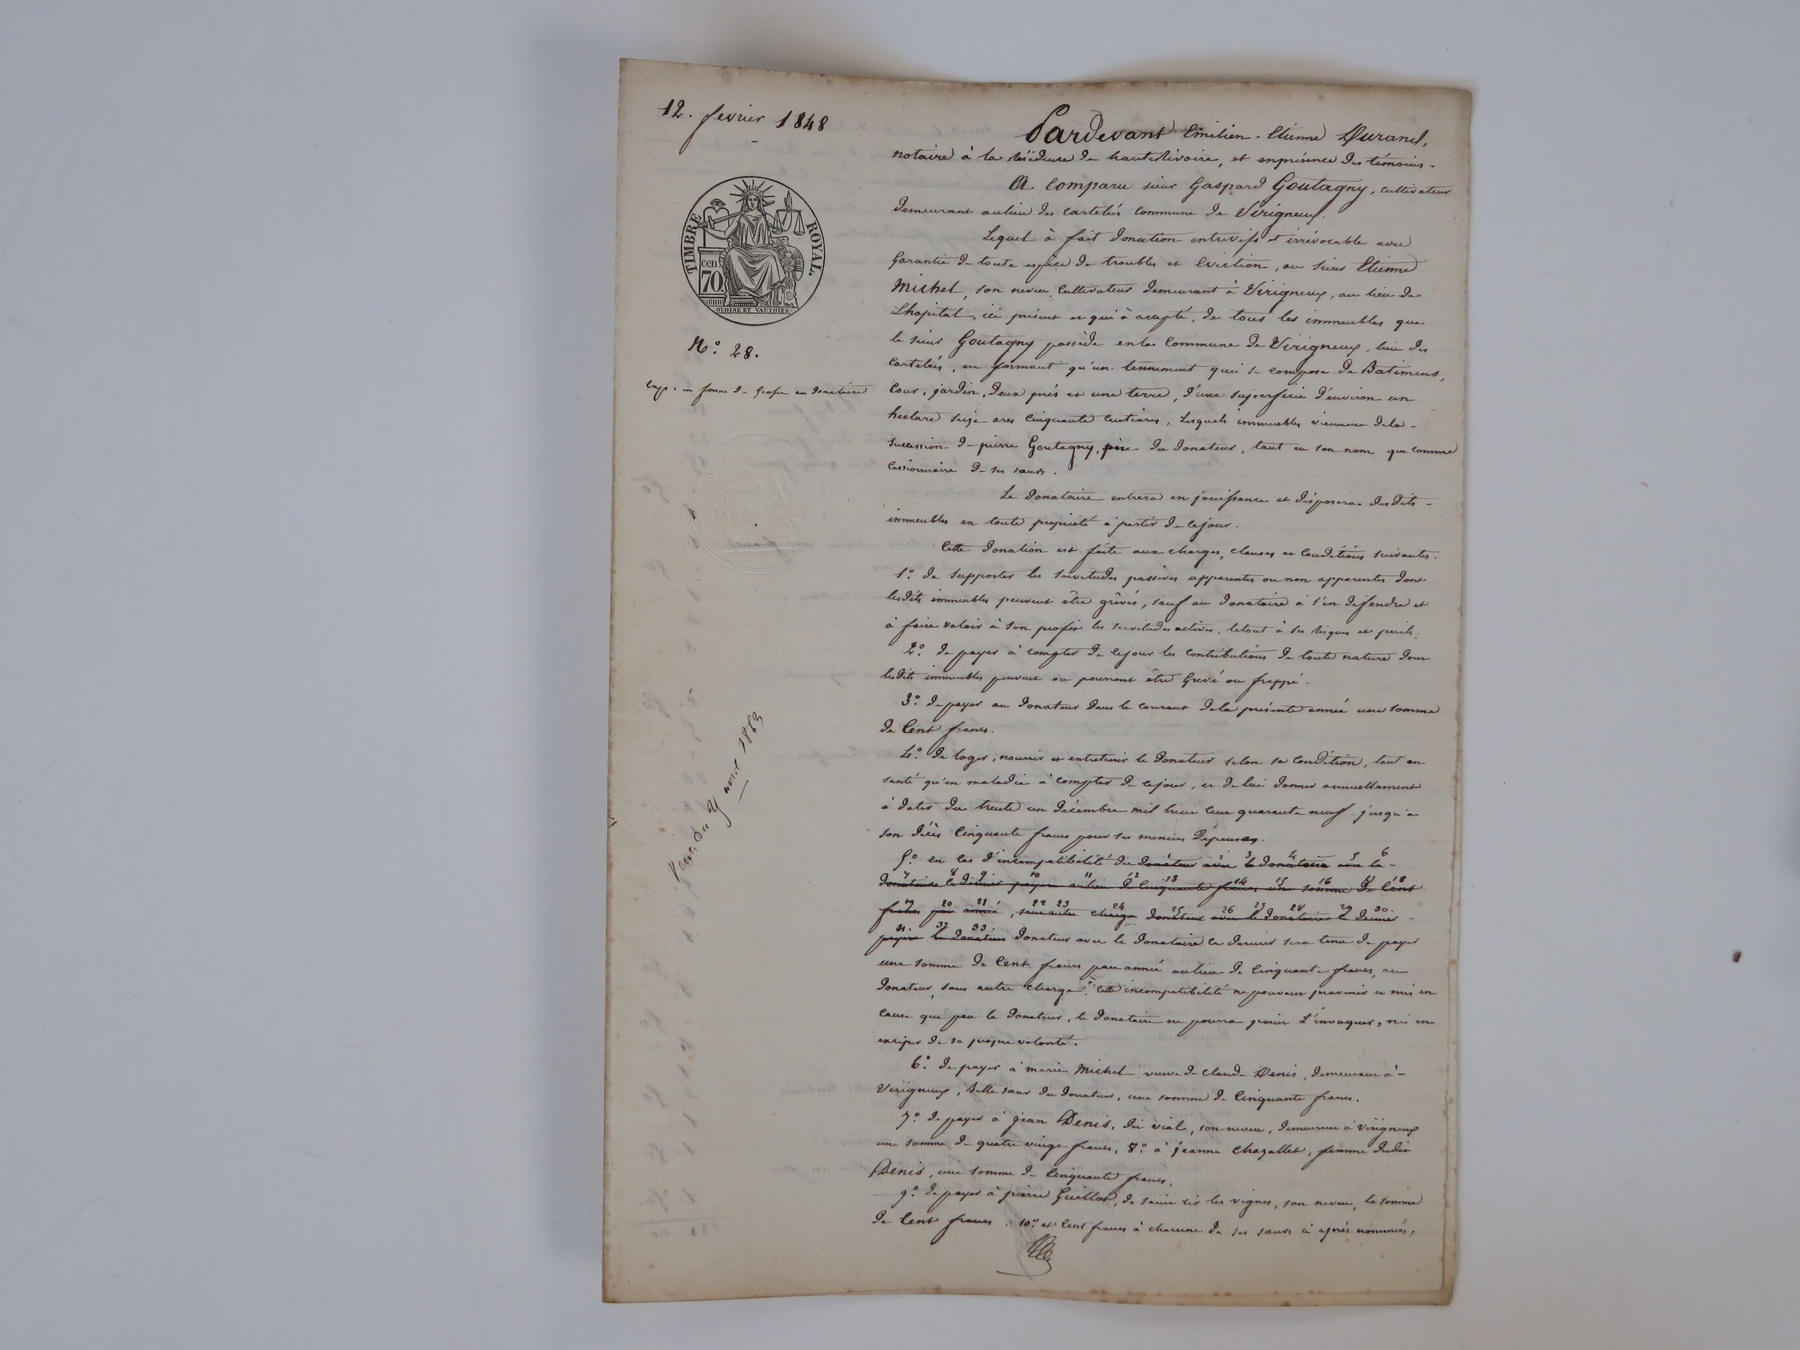 12. fevrier 1848
TIMBRE ROYAL.
cen
70
OUDINÉ ET VAUTHIER
N.° 28.
Exp. en forme de Grosse au donataire
Vers. du 29 avril 1863
Pardevant Emilien-Etienne Durand,
notaire à la résidence de hauterivoire, et enprésence des témoins.
A Comparu sieur Gaspard Goutagny, cultivateur
demeurant aulieu des cartelés commune de Virigneux.
Lequel à fait donation entrevifs et irrévocable avec
Garantie de toute espèce de troubles et Eviction, au sieur Etienne
Michel, son neveu Cultivateur demeurant à Virigneux, au lieu de
L'hopital, ici présent et qui à accepté, de tous les immeubles que
le sieur Goutagny possède enla Commune de Virigneux, lieu des
cartelés, ne formant qu'un tennement qui se compose de Batimens,
Cour, jardin, deux prés et une terre, d'une superficie d'environ un
hectare seize ares Cinquante Centiares, Lesquels immeubles viennent dela-
succession de pierre Goutagny, père du donateur, tant en son nom que comme
Cessionnaire de ses sœurs.
Le donataire entrera en jouissance et disposera desdits-
immeubles en toute propriété à partir de cejour.
Cette donation est faite aux charges, clauses et Conditions suivantes.
1.° de supporter les servitudes passives apparentes ou non apparentes dont
lesdits immeubles peuvent être grêvés, sauf au donataire à s'en défendre et
à faire valoir à son profit les servitudes actives, letout à ses risques et perils;
2.° de payer à compter de cejour les contributions de toute nature dont
lesdits immeubles peuvent ou pourront être Grevé ou frappé.
3.° de payer au donateur dans le courant dela présente année une somme
de Cent francs.
4.° de loger, nourrir et entretenir le donateur selon sa Condition, tant en
santé qu'en maladie à compter de cejour, et de lui donner annuellement
à dater du trente un décembre mil huit Cent quarante neuf jusqu'à
son décès Cinquante francs pour ses menues dépenses.
5.° en cas d'incompatibilité du donateur avec le donataire avec le-
donataire le dernier payera aulieu de Cinquante francs une somme de Cent
francs par année, sans autre charge donateur avec le donataire le dernier-
payera le donateur donateur avec le donataire ce dernier sera tenu de payer
une somme de Cent francs par année aulieu de Cinquante francs, au
donateur, sans autre charge. Cette incompatibilité ne pouvant provenir et mis en
cause que par le donateur, le donataire ne pourra point L'invoquer, ni en
exciper de sa propre volonté.
6.° de payer à marie Michel, veuve de Claude Denis, demeurant à-
Virigneux, Belle sœur du donateur, une somme de Cinquante francs.
7.° de payer à jean Denis, dit viale, son neveu, demeurant à Virigneux
une somme de quatre vingt francs, 8.° à jeanne Chazallet, femme dudit
Denis, une somme de Cinquante francs,
9.° de payer à pierre Guillot, de saint cir les vignes, son neveu, la somme
de Cent francs. 10.° et Cent francs à chacune de ses sœurs ci après nommées,